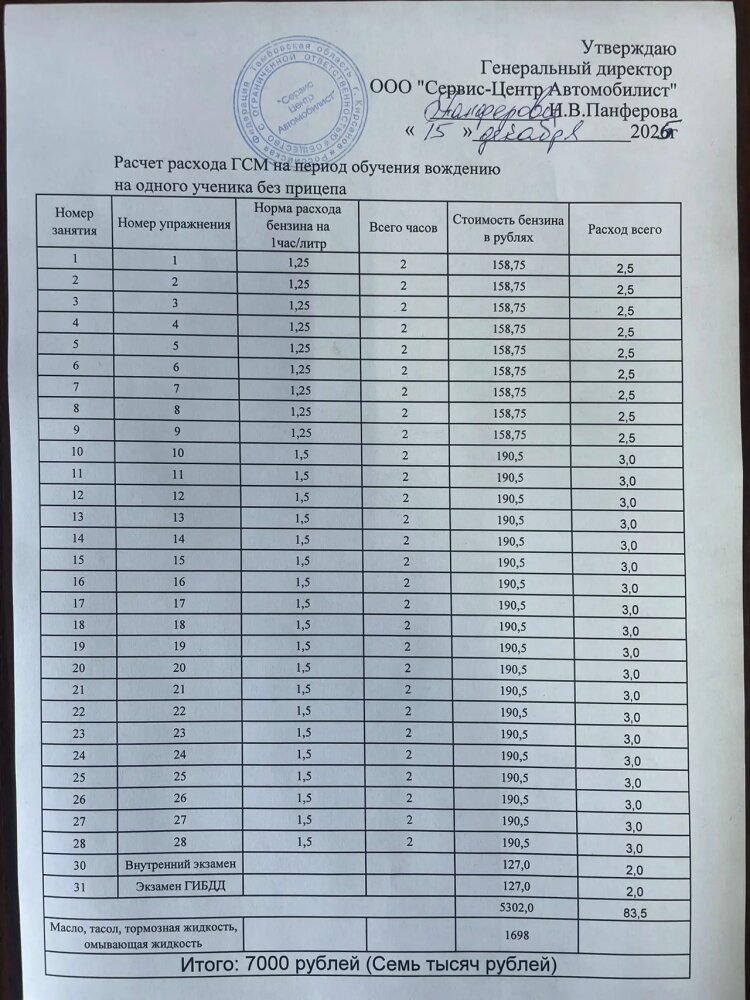 Утверждаю
Генеральный директор
ООО "Сервис-Центр Автомобилист"
Панферова И.В.Панферова
« 15 » декабря 2025г
Российская Федерация Тамбовская область г. Кирсанов
ОБЩЕСТВО С ОГРАНИЧЕННОЙ ОТВЕТСТВЕННОСТЬЮ
"Сервис
Центр
Автомобилист"
Расчет расхода ГСМ на период обучения вождению
на одного ученика без прицепа
Номер занятия Номер упражнения Норма расхода бензина на 1час/литр Всего часов Стоимость бензина в рублях Расход всего
1 1 1,25 2 158,75 2,5
2 2 1,25 2 158,75 2,5
3 3 1,25 2 158,75 2,5
4 4 1,25 2 158,75 2,5
5 5 1,25 2 158,75 2,5
6 6 1,25 2 158,75 2,5
7 7 1,25 2 158,75 2,5
8 8 1,25 2 158,75 2,5
9 9 1,25 2 158,75 2,5
10 10 1,5 2 190,5 3,0
11 11 1,5 2 190,5 3,0
12 12 1,5 2 190,5 3,0
13 13 1,5 2 190,5 3,0
14 14 1,5 2 190,5 3,0
15 15 1,5 2 190,5 3,0
16 16 1,5 2 190,5 3,0
17 17 1,5 2 190,5 3,0
18 18 1,5 2 190,5 3,0
19 19 1,5 2 190,5 3,0
20 20 1,5 2 190,5 3,0
21 21 1,5 2 190,5 3,0
22 22 1,5 2 190,5 3,0
23 23 1,5 2 190,5 3,0
24 24 1,5 2 190,5 3,0
25 25 1,5 2 190,5 3,0
26 26 1,5 2 190,5 3,0
27 27 1,5 2 190,5 3,0
28 28 1,5 2 190,5 3,0
30 Внутренний экзамен 127,0 2,0
31 Экзамен ГИБДД 127,0 2,0
5302,0 83,5
Масло, тасол, тормозная жидкость, омывающая жидкость 1698
Итого: 7000 рублей (Семь тысяч рублей)